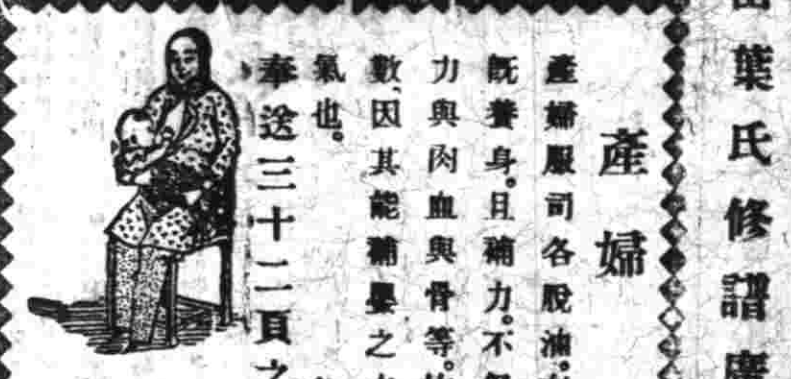 葉氏修譜
產婦
產婦服司各脫油。
既養身。且補力。不
力與肉血與骨等。
數、因其能補嬰之
氣也。
奉送三十二頁之